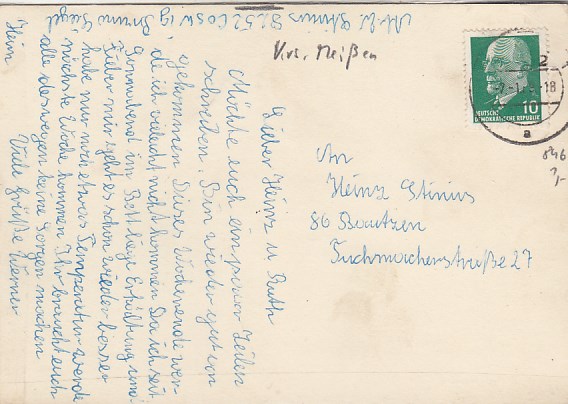 Abs. W. Stenius 8252 Coswig
Krs. Meißen
Lieber Heinz u. Ruth
Möchte euch ein paar Zeilen
schreiben. Bin wieder gut
gekommen. Dieses Wochenende wer-
de ich vielleicht nicht kommen. Da ich seit
Sonnabend im Bett liege Erkältung und
Fieber mir geht es schon wieder besser
habe nur noch etwas Temperatur werde
nächste Woche kommen. Ihr braucht euch
alle deswegen keine Sorgen machen
Viele Grüße Werner
Heim
An
Heinz Stenius
86 Bautzen
Tuchmacherstraße 27
10
DEUTSCHE
DEMOKRATISCHE REPUBLIK
18
a
846